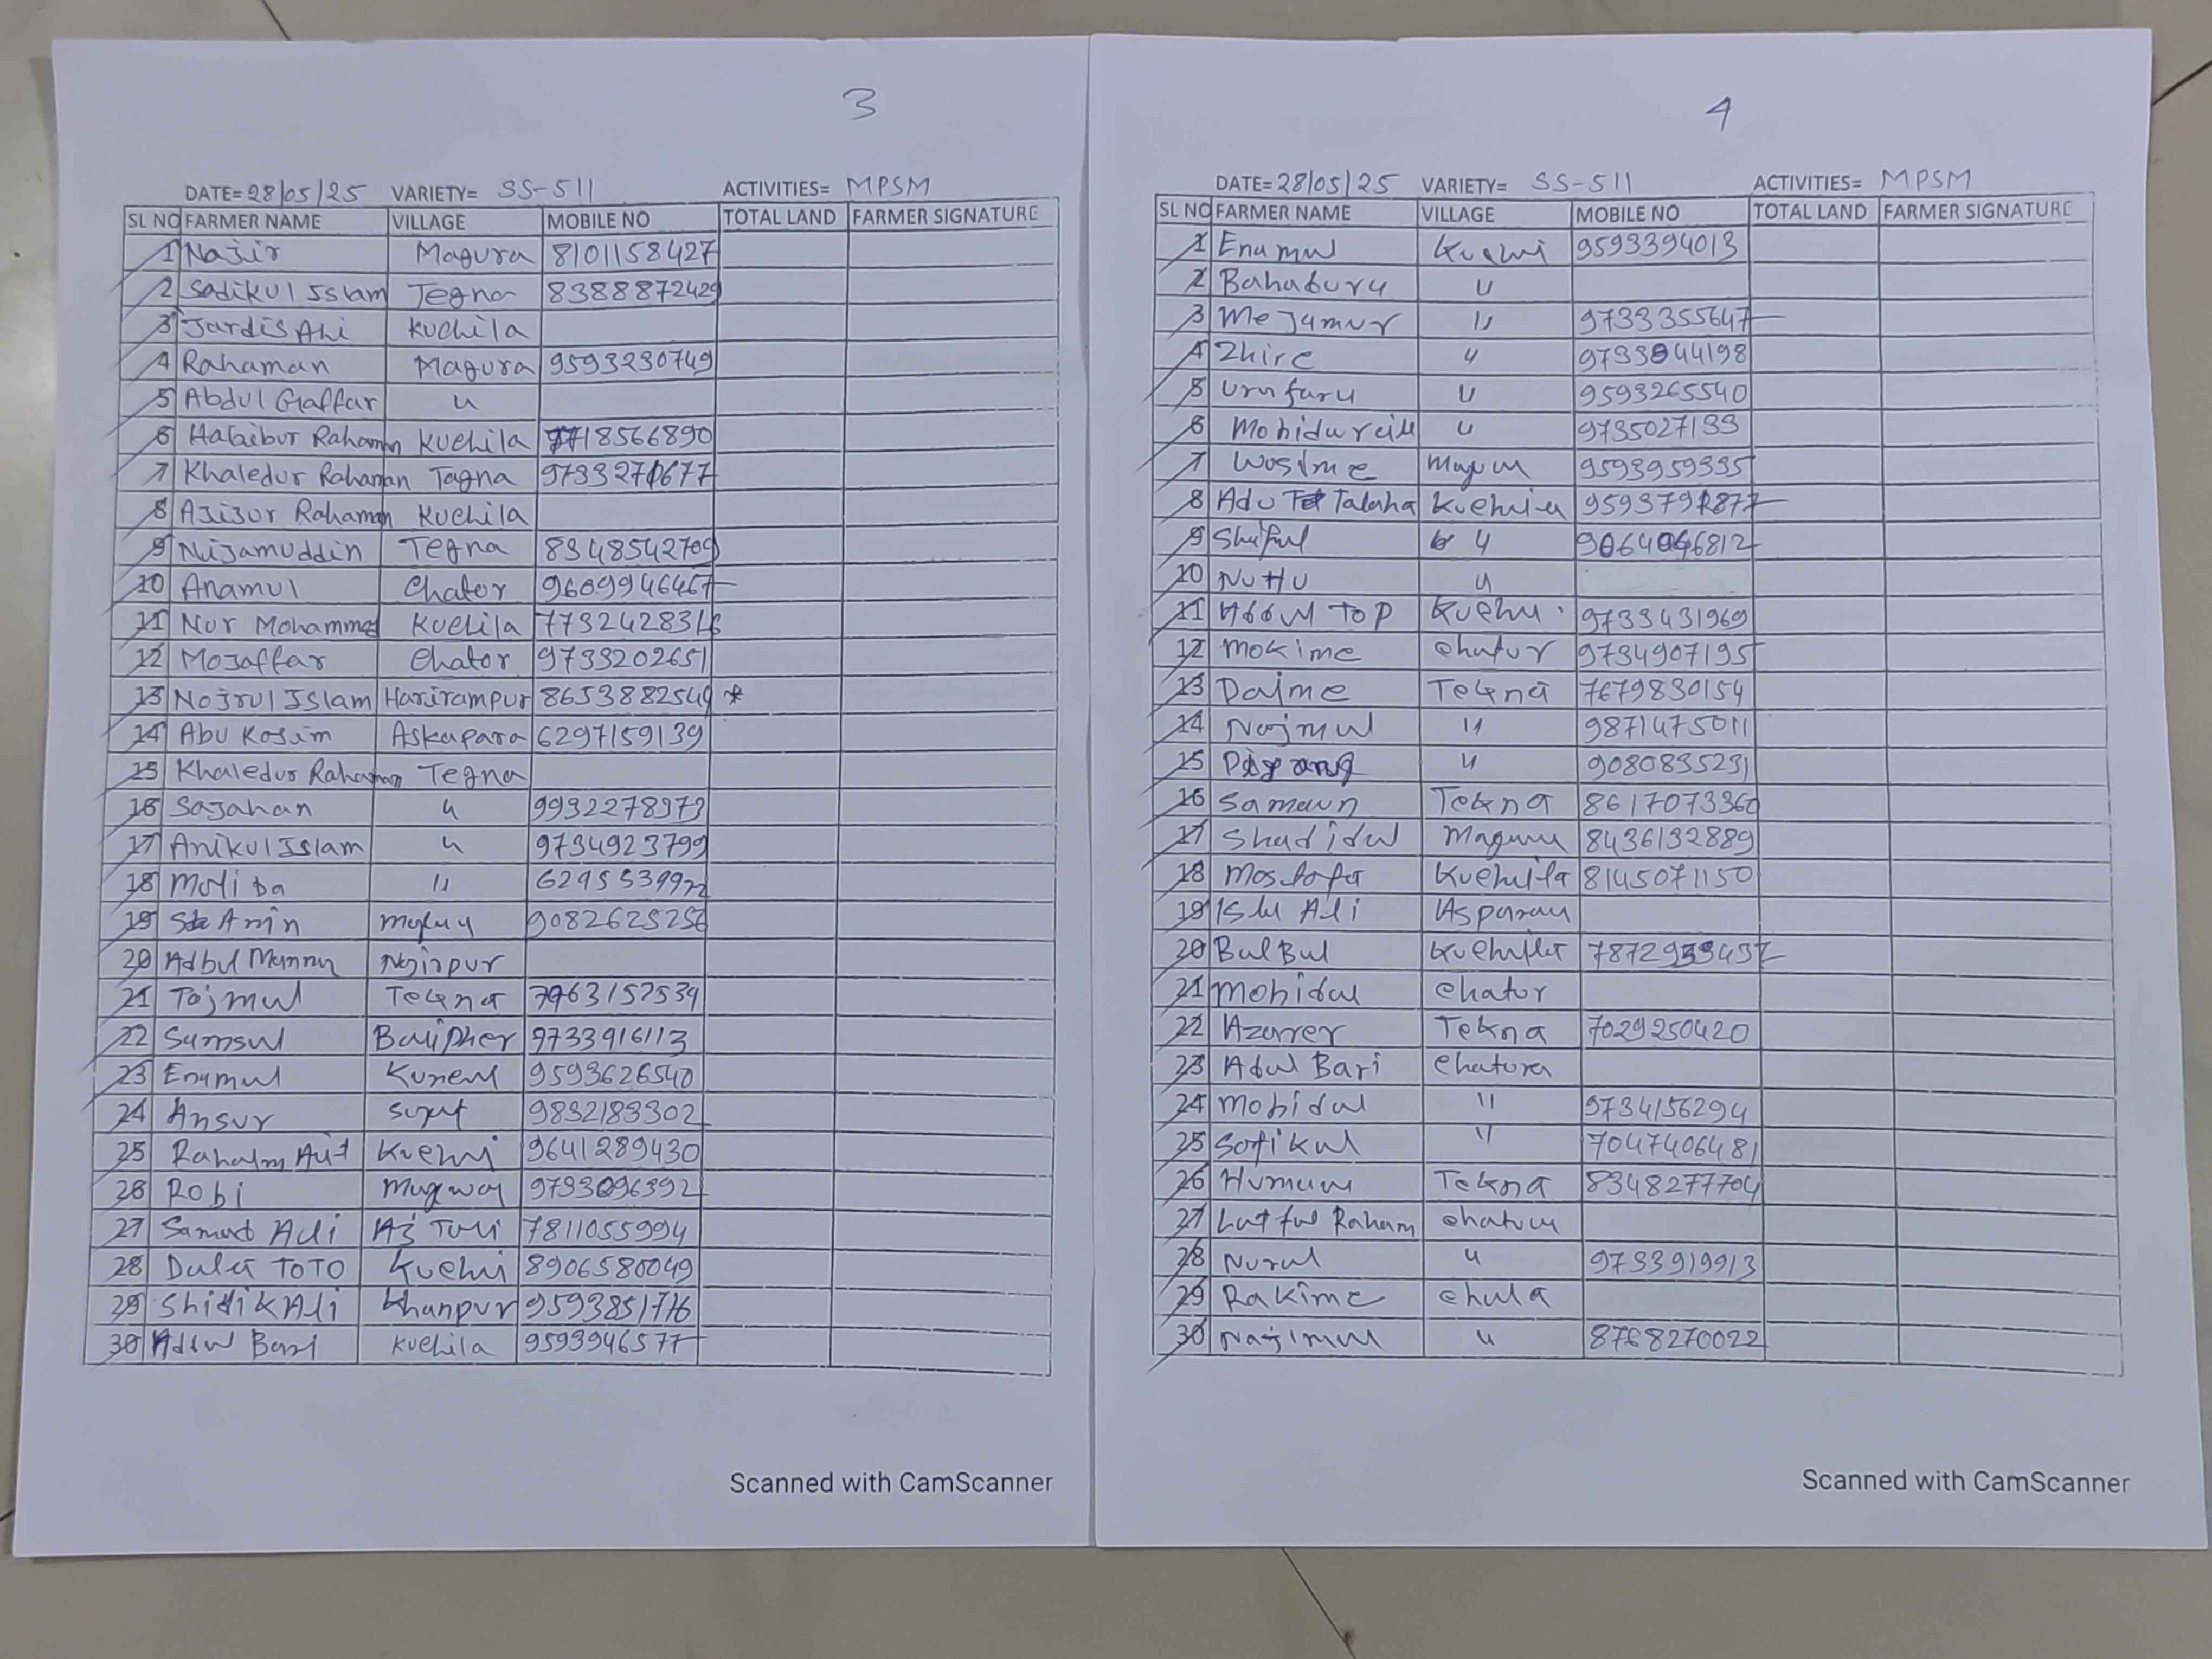 3
DATE= 28/05/25 VARIETY= SS-511 ACTIVITIES= MPSM
SL NO FARMER NAME VILLAGE MOBILE NO TOTAL LAND FARMER SIGNATURE
1 Najir Magura 8101158427
2 Sadikul Islam Tegna 8388872429
3 Jardis Ali Kuchila
4 Rahaman Magura 9593230749
5 Abdul Gaffar u
6 Habibur Rahaman Kuchila 7718566890
7 Khaledur Rahaman Tagna 9733271677
8 Ajijur Rahaman Kuchila
9 Nijamuddin Tegna 8348542709
10 Anamul Chator 9609946467
11 Nur Mohammed Kuchila 7732428316
12 Mojaffar Chator 9733202651
13 Nojrul Islam Harirampur 8653882549 *
14 Abu Kosim Askapara 6297159139
15 Khaledur Rahaman Tegna
16 Sajahan u 9932278973
17 Anikul Islam u 9734923799
18 Moliba 11 6295539972
19 Amin 9082625256
20 Adbul Munnu Najirpur
21 Tajmul Tekna 7963152539
22 Samsul 9733916113
23 Enamul 9593626540
24 Ansur 9832183302
25 Kuchi 9641289430
26 Robi 9733096392
27 Samad Ali 7811055994
28 TOTO Kuchi 8906580049
29 Shidik Ali Khanpur 9593851776
30 Bari Kuchila 9593946577
Scanned with CamScanner
4
DATE= 28/05/25 VARIETY= SS-511 ACTIVITIES= MPSM
SL NO FARMER NAME VILLAGE MOBILE NO TOTAL LAND FARMER SIGNATURE
1 Enamul Kuchi 9593394013
2 Bahaduru u
3 Mejamur 11 9733355647
4 Zhire u 9733944198
5 u 9593265540
6 u 9735027133
7 9593959335
8 Talaha 9593791877
9 Shiful u 9064046812
10 u
11 Top 9733431969
12 Mokime Chatur 9734907195
13 Dajme Tekna 7679830154
14 Najmul 11 9871475011
15 u 9080835231
16 Samaun Tekna 8617073360
17 Shadidul 8436132889
18 Mostofa Kuchilta 8145071150
19 Ali
20 BulBul 7872939437
21 Mobidul Chator
22 Azarrer Tekna 7029250420
23 Bari Chatura
24 Mobidul 11 9734156294
25 Sofikul 11 7047406481
26 Tekna 8348277704
27 Lutful Raham
28 Nurul u 9733919913
29 Rakime Chula
30 Najimul u 8768270022
Scanned with CamScanner